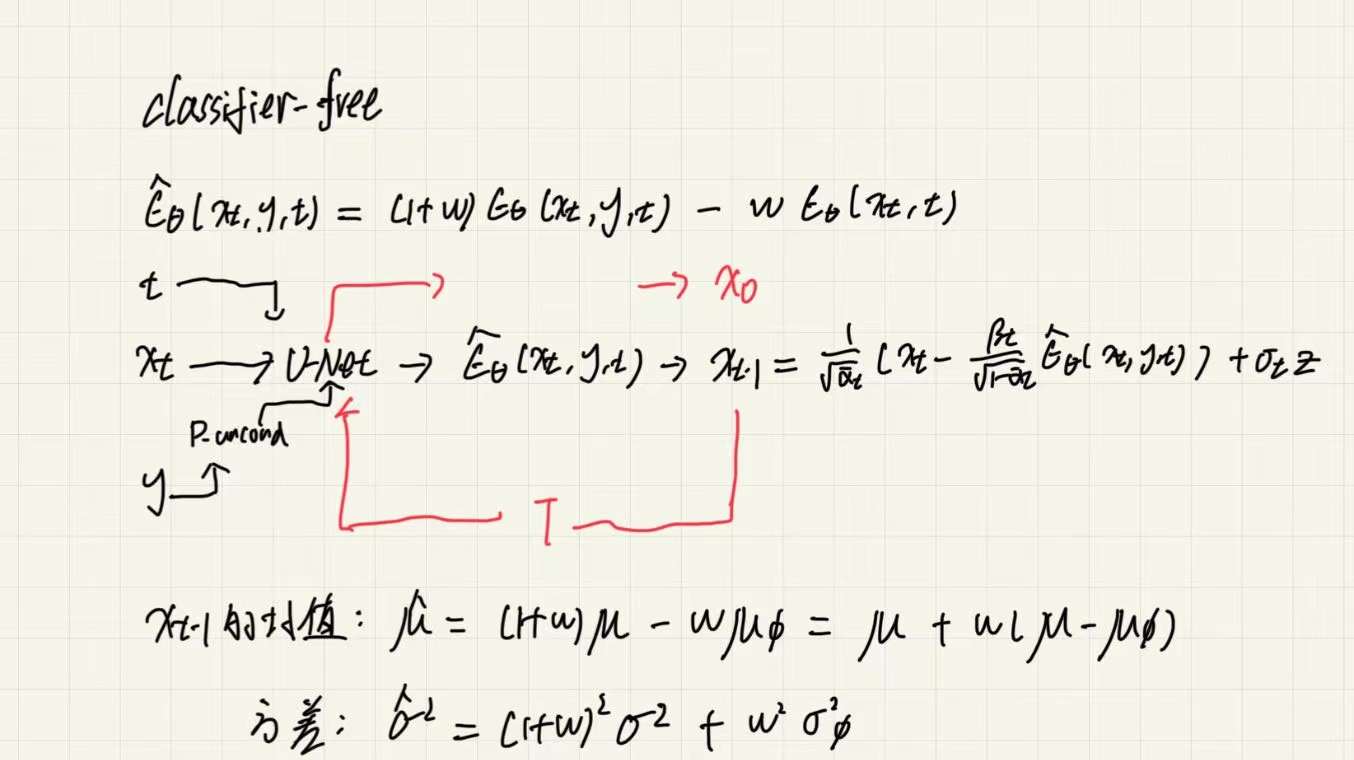 classifier-free
ε̂θ(xt,y,t) = (1+w) εθ(xt,y,t) − w εθ(xt,t)
t → x0
xt → U-Net → ε̂θ(xt,y,t) → xt-1 = 1/√ᾱt (xt − βt/√1-ᾱt ε̂θ(xt,y,t)) + σt z
P-uncond
y
T
xt-1的均值: μ̂ = (1+w)μ − wμϕ = μ + w(μ−μϕ)
方差: σ̂² = (1+w)²σ² + w²σ²ϕ